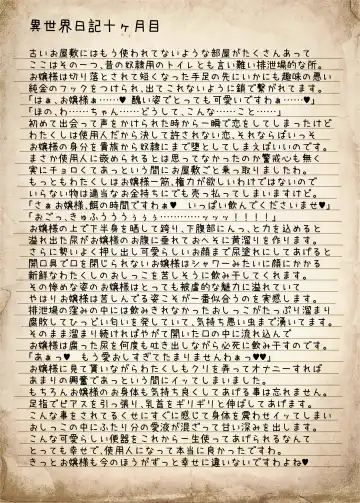 異世界日記十ヶ月目
古いお屋敷にはもう使われてないような部屋がたくさんあって
ここはその一つ、昔の奴隷用のトイレとも言い難い排泄場的な所。
お嬢様は切り落とされて短くなった手足の先にいかにも趣味の悪い
純金のフックをつけられ、出てこれないように鎖で繋がれてます。
「はぁ、お嬢様ぁ……♥ 醜い姿でとっても可愛いですわぁ……♥」
「ほの、わ……ちゃん……どうして、こんな……こと……」
初めて出会って声をかけられた時から一瞬で恋をしてしまったけど
わたくしは使用人だから決して許されない恋、それならばいっそ
お嬢様の身分を貴族から奴隷にまで堕としてしまえばいいのです。
まさか使用人に嵌められるとは思ってなかったのか警戒心も無く
実にチョロくてあっという間にお屋敷ごと乗っ取りましたわ。
もっともわたくしはお嬢様一筋、権力が欲しいわけではないので
いらない物は適当なお金持ちにでも売っ払ってしまいますけど。
「さぁお嬢様、餌の時間ですわぁ♥ いっぱい飲んでくださいませ♥」
「おごっ、きゅふうううぅぅぅ…………ッッッ！！！！」
お嬢様の上で下半身を晒して跨り、下腹部にんっ、と力を込めると
溢れ出た尿がお嬢様のお腹に垂れておへそに黄溜りを作ります。
さらに勢いよく押し出し可愛らしいお顔まで尿塗れにしてあげると
開口具で口を閉じられないお嬢様はシャワーみたいに顔にかかる
新鮮なわたくしのおしっこを苦しそうに飲み干してくれます。
その惨めな姿のお嬢様はとっても被虐的な魅力に溢れていて
やはりお嬢様は苦しんでる姿こそが一番似合うのを実感します。
排泄場の窪みの中には飲みきれなかったおしっこがたっぷり溜まり
腐敗してひっどい匂いを発していて、気持ち悪い虫まで湧いてます。
そのまま溜まり続ければやがて開いた口の中に流れ込んで
お嬢様は腐った尿を何度も吐き出しながら必死に飲み干すのです。
「あぁっ♥ もう愛おしすぎてたまりませんわぁっ♥♥」
お嬢様に見て貰いながらわたくしもクリを弄ってオナニーすれば
あまりの興奮であっという間にイッてしまいました。
もちろんお嬢様のお身体も気持ち良くしてあげる事は忘れません。
足指でピアスを引っ張り、乳首をギリギリと伸ばしてあげます。
こんな事をされてるくせにすぐに感じて身体を震わせイッてしまい
おしっこの中にふたり分の愛液が混ざって甘い深みを出します。
こんな可愛らしい便器をこれから一生使ってあげられるなんて
とっても幸せで、使用人になって本当に良かったですわ。
きっとお嬢様も今のほうがずっと幸せに違いないですわよね♥